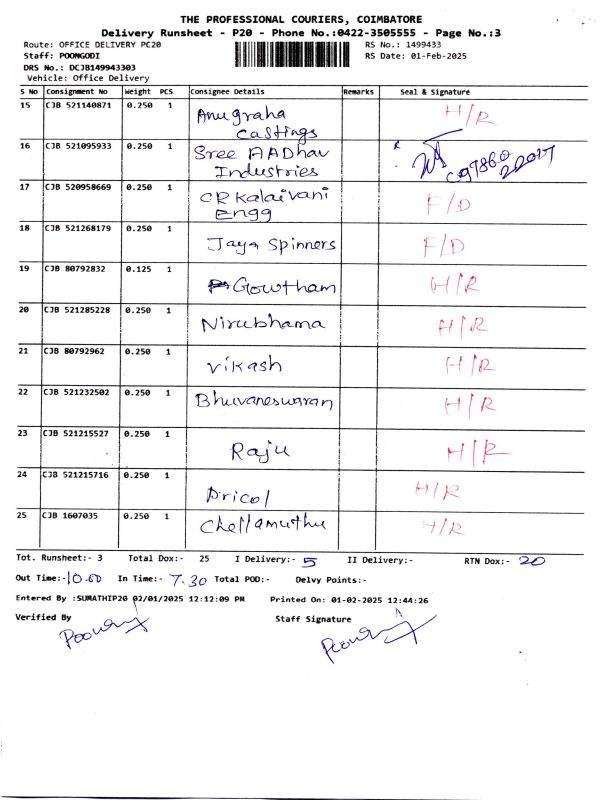 THE PROFESSIONAL COURIERS, COIMBATORE
Delivery Runsheet - P20 - Phone No.:0422-3505555 - Page No.:3
Route: OFFICE DELIVERY PC20 RS No.: 1499433
Staff: POONGODI RS Date: 01-Feb-2025
DRS No.: DCJB149943303
Vehicle: Office Delivery
S No Consignment No Weight PCS Consignee Details Remarks Seal & Signature
15 CJB 521140871 0.250 1 Anugraha H/R
Castings
16 CJB 521095933 0.250 1 Sree AADhav
Industries
17 CJB 520958669 0.250 1 CR Kalaivani F/D
Engg
18 CJB 521268179 0.250 1 Jaya Spinners F/D
19 CJB 80792832 0.125 1 Gowtham H/R
20 CJB 521285228 0.250 1 Nirubhama H/R
21 CJB 80792962 0.250 1 Vikash H/R
22 CJB 521232502 0.250 1 Bhuvaneswaran H/R
23 CJB 521215527 0.250 1 Raju H/R
24 CJB 521215716 0.250 1 Pricol H/R
25 CJB 1607035 0.250 1 Chellamuthu H/R
Tot. Runsheet:- 3 Total Dox:- 25 I Delivery:- 5 II Delivery:- RTN Dox:- 20
Out Time:- 10.00 In Time:- 7.30 Total POD:- Delvy Points:-
Entered By :SUMATHIP20 02/01/2025 12:12:09 PM Printed On: 01-02-2025 12:44:26
Verified By Staff Signature